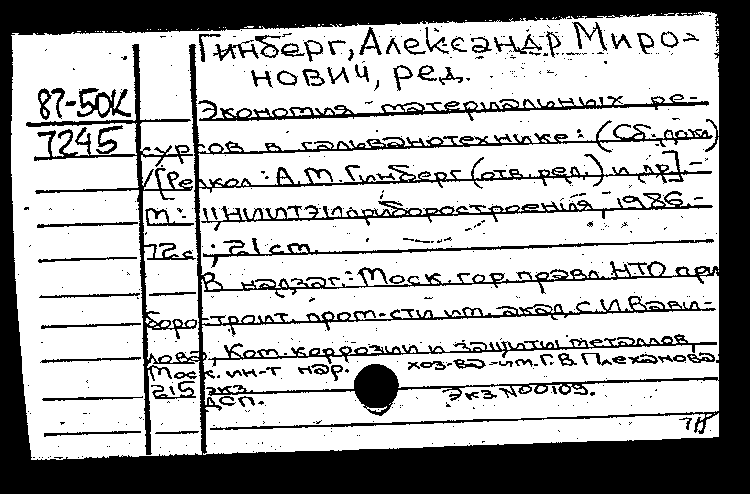 Гинберг, Александр Миро-
нович, ред.
87-50К
Экономия материальных ре-
7245
сурсов в гальванотехнике: (Сб. докл)
/[Редкол: А.М.Гинберг (отв. ред.) и др]. -
М.: ЦНИИТЭИприборостроения, 1986.-
72с ; 21 см.
В надзаг.: Моск. гор. правл. НТО при
боро-троит. пром-сти им. акад. С.И.Вави-
лова, Ком. коррозии и защиты металлов,
Моск. ин-т нар. хоз-ва им. Г.В. Плеханова.
215 экз.
ДСП. Экз. N00109.